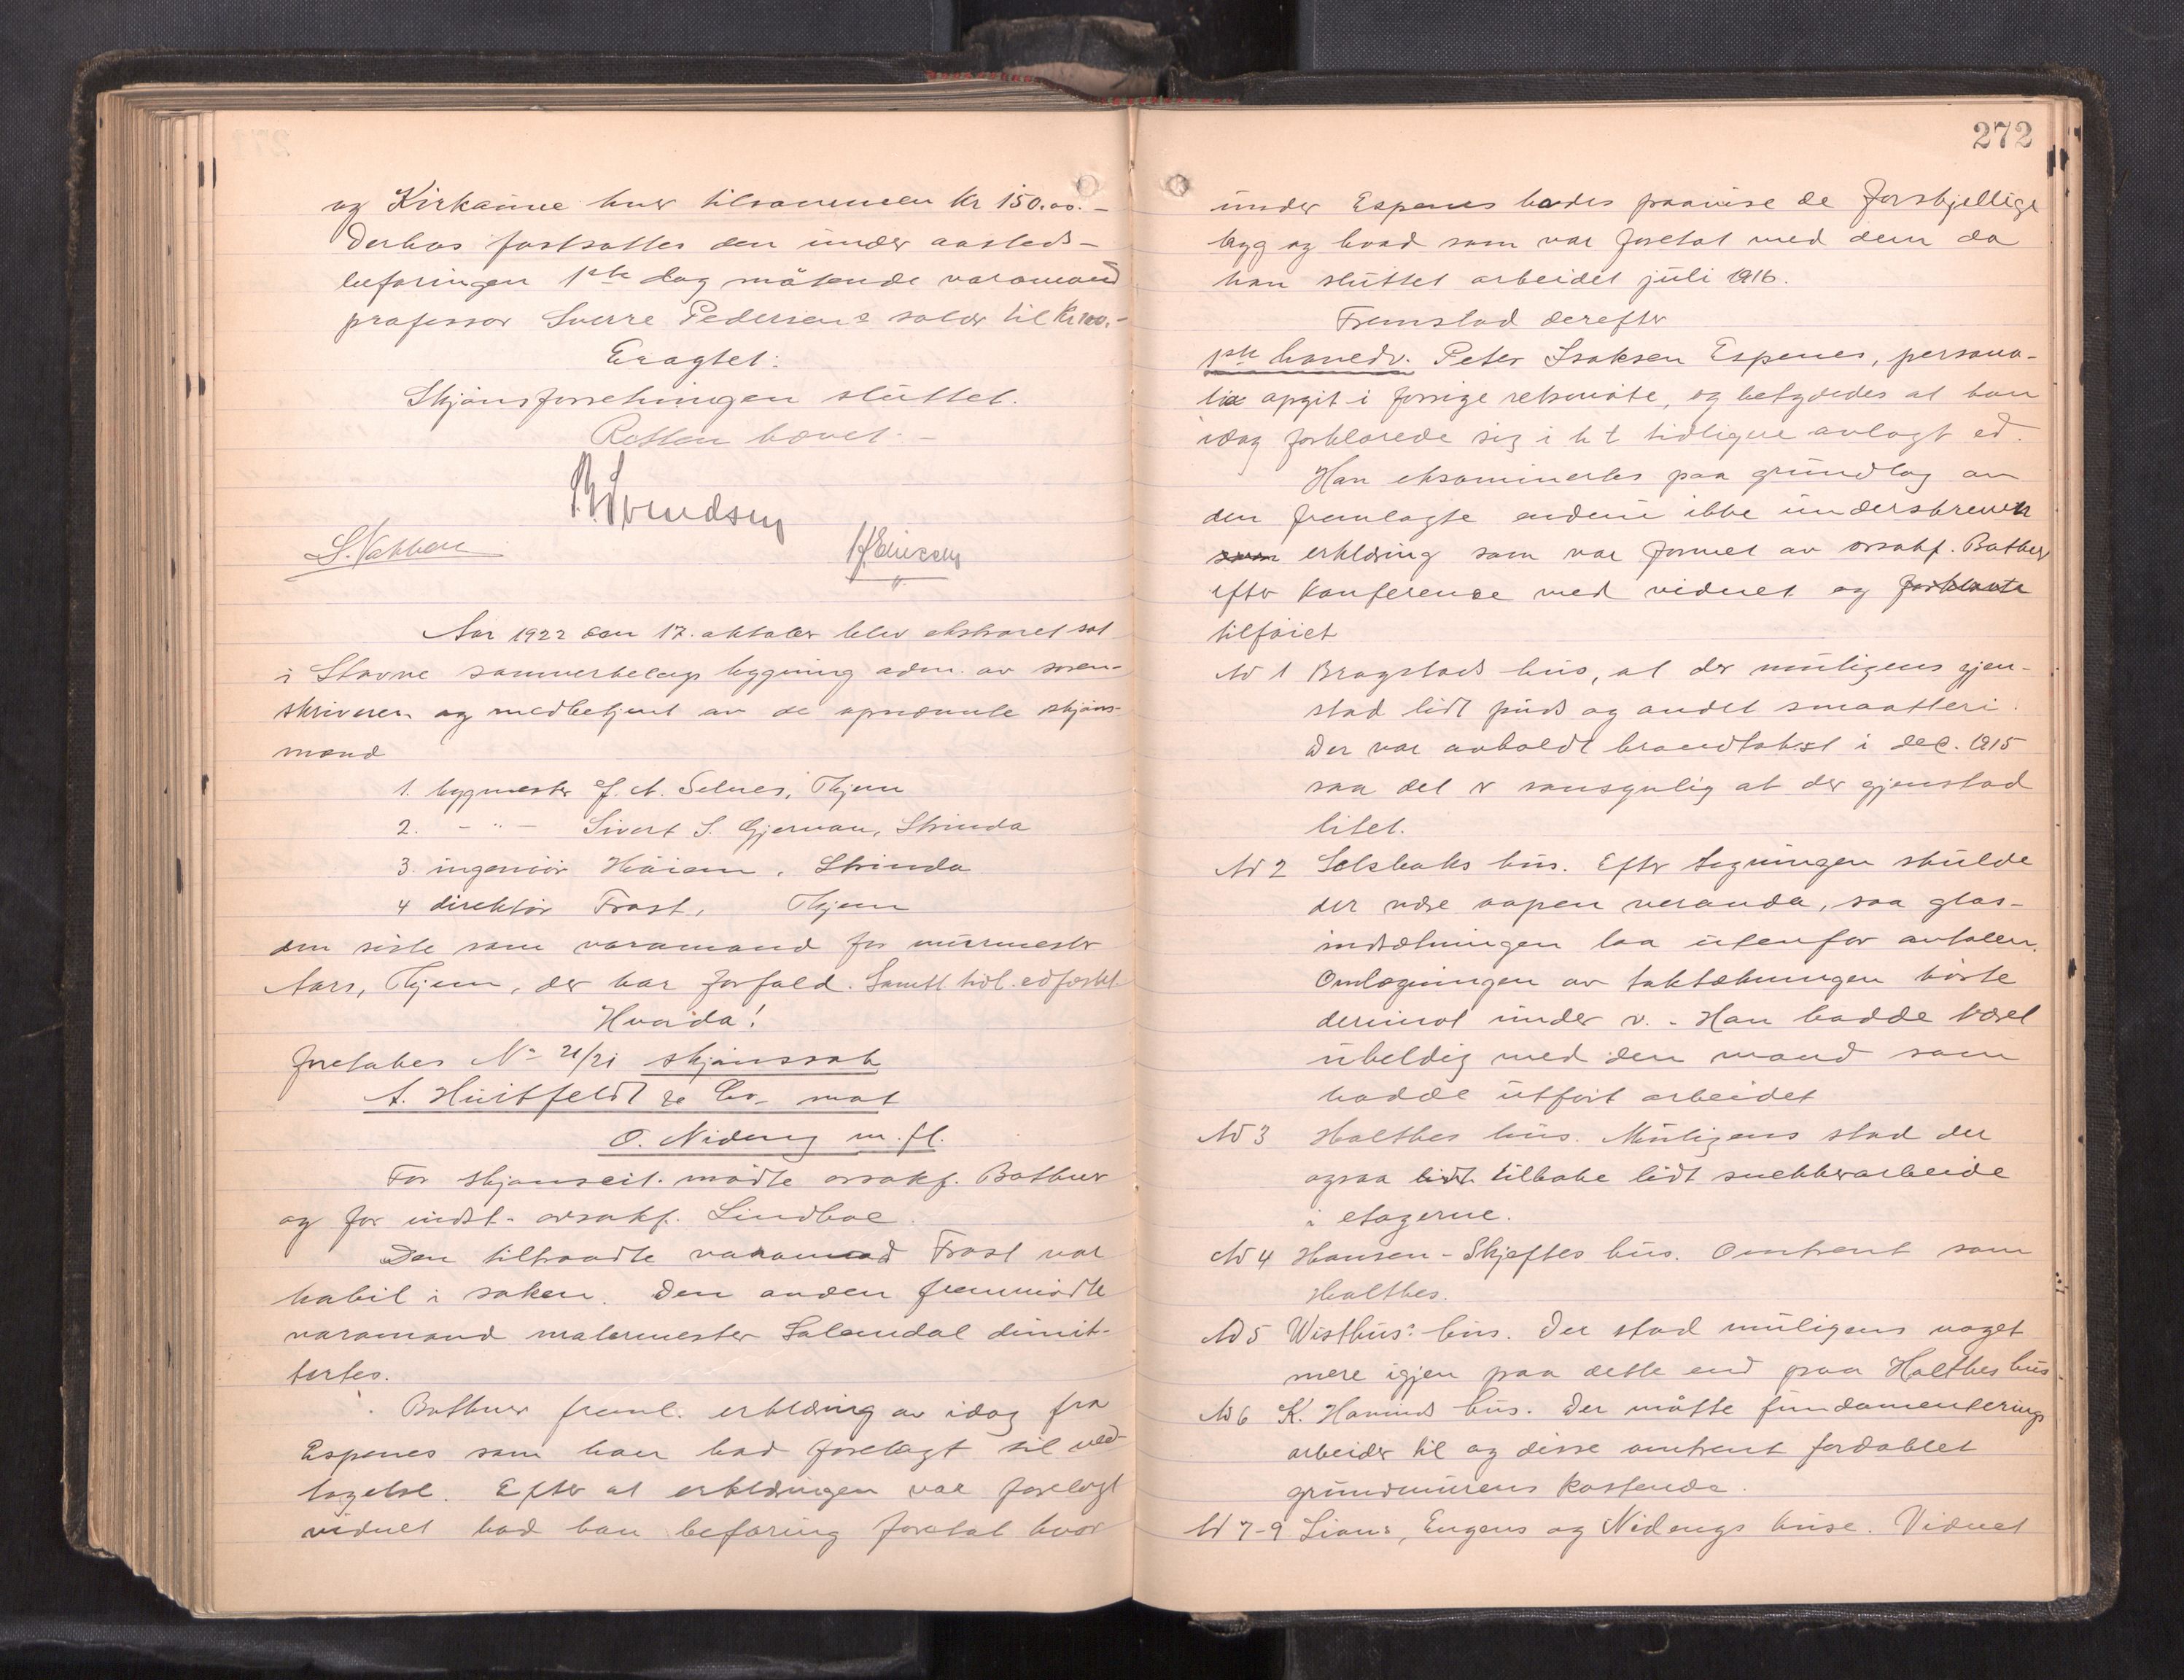 og Kirkaune hver tilsammen Kr 150.00.-
Derhos fastsattes den under aasteds-
befaringen 1ste dag mötende varamand
professor Sverre Pedersens salær til Kr 100.-
Eragtet:
Skjönsforretningen sluttet.
Retten hævet.-
Svendsen
S. Vakken
Aar 1922 den 17. oktober blev ekstraret sat
i Stavne samverkelags bygning adm. av soren-
skriveren og medbetjent av de opnævnte skjöns-
mænd
1. bygmester J. A. Selnes, Thjem
2. - " - Sivert S. Gjervan, Strinda
3. ingeniör Höiem, Strinda
4 direktör Frost, Thjem
den siste som varamand for murmester
Aars, Thjem, der har forfald. Samtl tidl. edfæstet.
Hvorda!
foretakes No 21/21 skjönssak
A. Huitfeldt & Co mot
O. Nideng m. fl.
For skjönscit. mödte orsakf. Bathen
og for indst. orsakf. Lindboe.
Den tiltraadte varamand Frost var
habil i saken. Den anden fremmödte
varamand malermester Solemdal dimit-
tertes.
Bathen freml. erklæring av idag fra
Espenes som han bad forelagt til ved-
tagelse. Efter at erklæringen var forelagt
vidnet bad han befaring foretat hvor
272
under Espenes bades paavise de forskjellige
byg og hvad som var foretat med dem da
han sluttet arbeidet juli 1916.
Fremstod derefter
1ste hovedv. Peter Isaksen Espenes, persona-
lia opgit i forrige retsmöte, og betydedes at han
idag forklarede sig i h t tidligere avlagt ed.
Han eksaminertes paa grundlag av
den fremlagte endnu ikke underskreven
som erklæring som var formet av orsakf. Bathen
efter konference med vidnet og forklarte
tilföiet
Ad 1 Bragstads hus, at der muligens gjen-
stod lidt puds og andet smaatteri.
Der var avholdt brandtakst i dec. 1915
saa det er sansynlig at der gjenstod
litet.
Ad 2 Selsbaks hus. Efter tegningen skulde
der være aapen veranda, saa glas-
indsætningen laa utenfor avtalen.
Omlægningen av taktækningen hörte
derimot under v. - Han hadde været
uheldig med den mand som
hadde utfört arbeidet
Ad 3 Halthes hus. Muligens stod der
ogsaa lidt tilbake lidt snekkerarbeide
i etagerne.
Ad 4 Hansen-Skjeftes hus. Omtrent som
Halthes.
Ad 5 Wisthus' hus. Der stod muligens noget
mere igjen paa dette end paa Halthes hus
Ad 6 K. Hamnds hus. Der måtte fundamenterings
arbeider til og disse omtrent fordoblet
grundmurens kostende.
Ad 7-9 Lians, Eugens og Nidengs huse. Vidnet